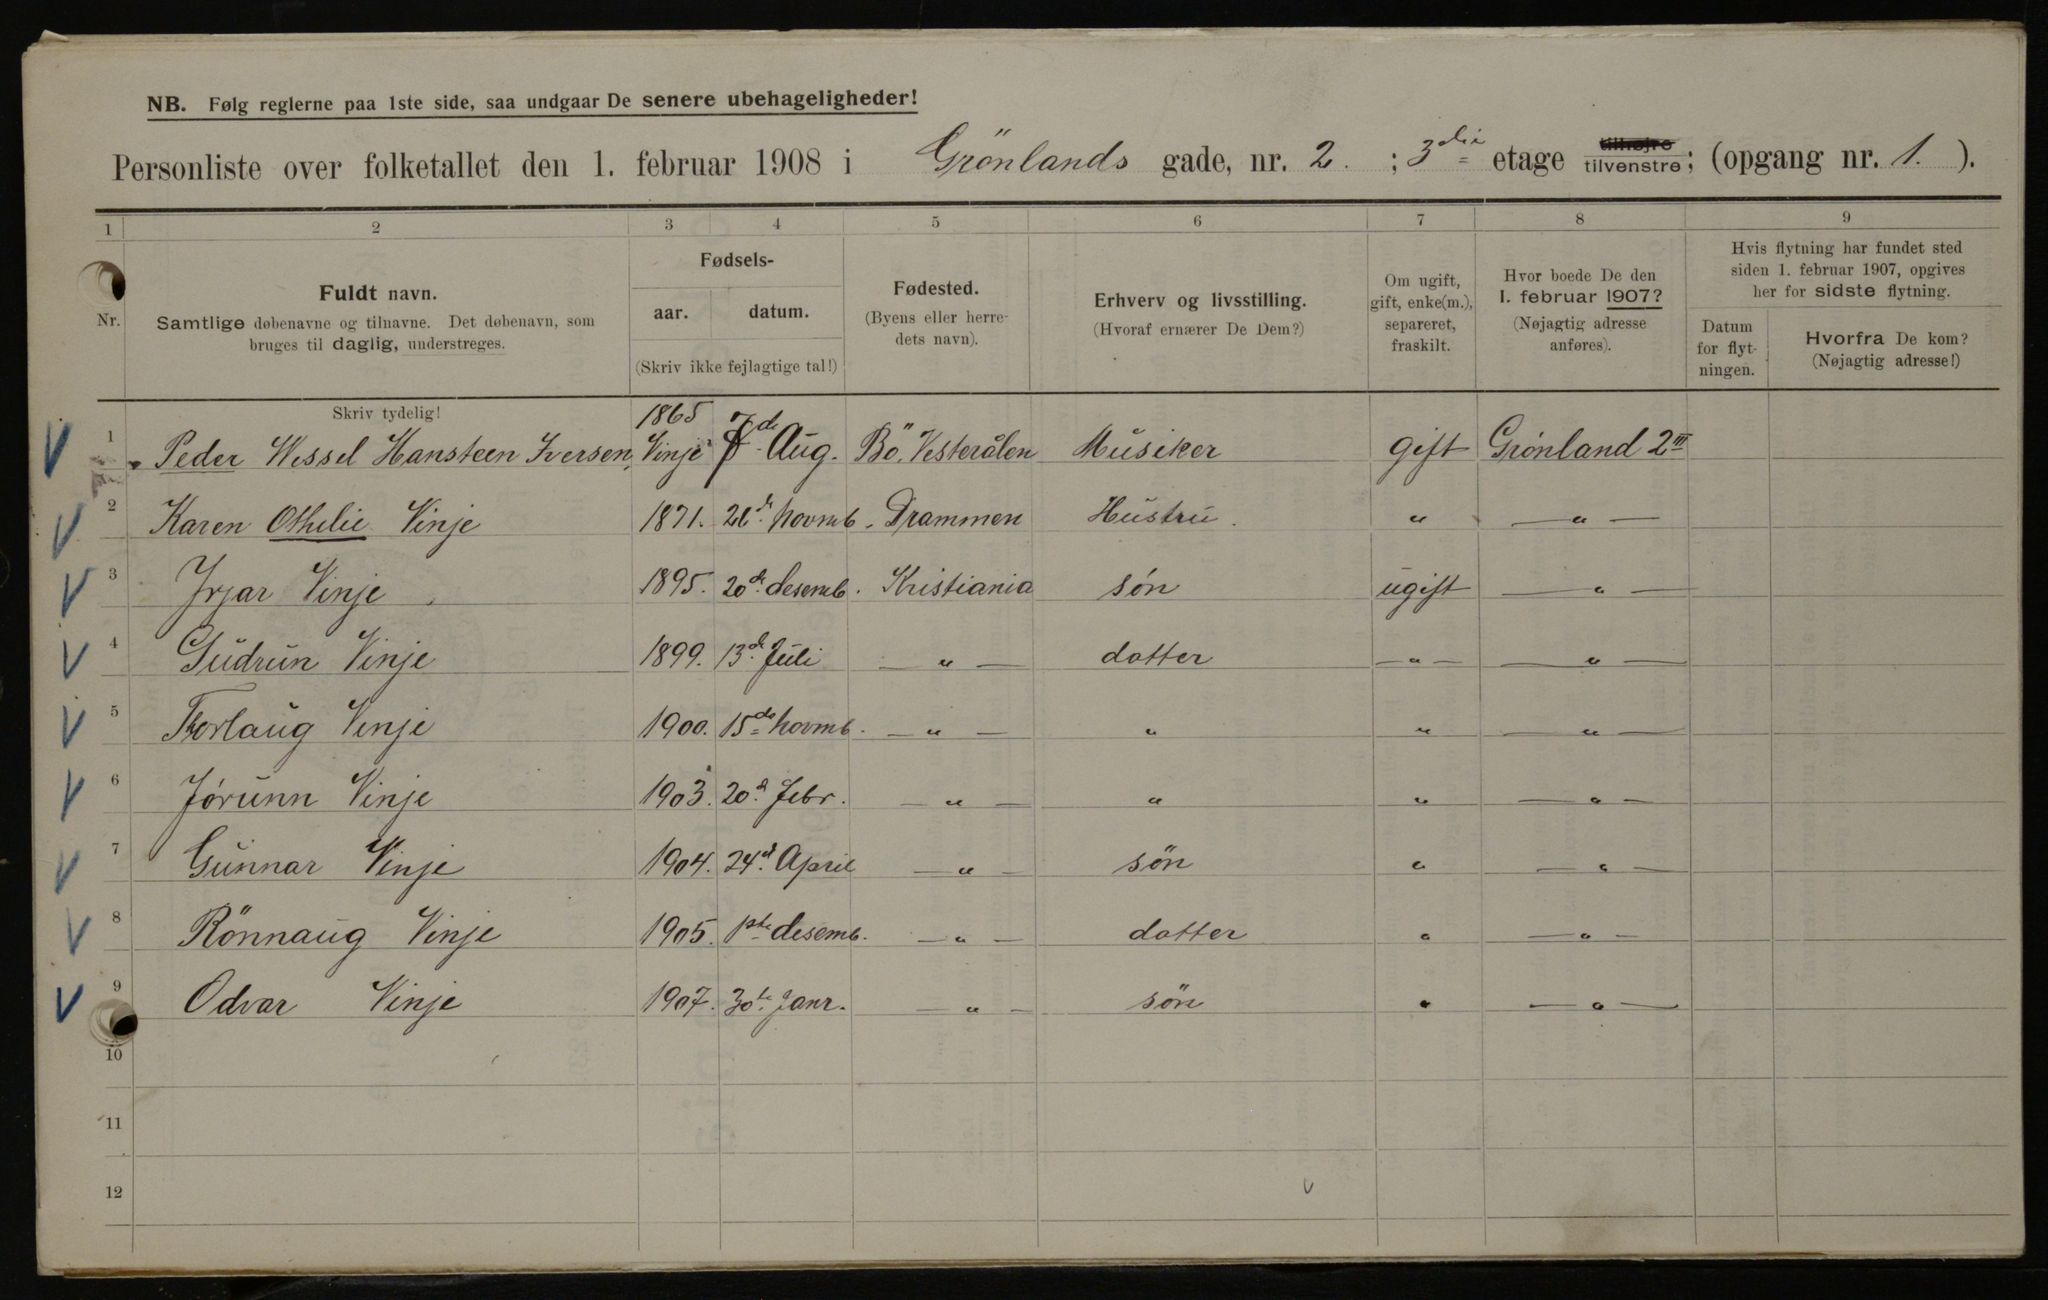 NB. Følg reglerne paa 1ste side, saa undgaar De senere ubehageligheder!
Personliste over folketallet den 1. februar 1908 i Grönlands gade, nr. 2. ; 3die etage tilhøjre tilvenstre; (opgang nr. 1. ).
1 2 3 4 5 6 7 8 9
Nr.
Fuldt navn.
Samtlige døbenavne og tilnavne. Det døbenavn, som
bruges til daglig, understreges.
Fødsels-
aar. datum.
(Skriv ikke fejlagtige tal!)
Fødested.
(Byens eller herre-
dets navn).
Erhverv og livsstilling.
(Hvoraf ernærer De Dem?)
Om ugift,
gift, enke(m.),
separeret,
fraskilt.
Hvor boede De den
1. februar 1907?
(Nøjagtig adresse
anføres).
Hvis flytning har fundet sted
siden 1. februar 1907, opgives
her for sidste flytning.
Datum
for flyt-
ningen.
Hvorfra De kom?
(Nøjagtig adresse!)
Skriv tydelig!
1 Peder Wessel Hansteen Iversen, Vinje 1865 7de Aug. Bö. Vesterålen Müsiker gift Grönland 2III
2 Karen Othilie Vinje 1871. 21d. Novmb. Drammen Hüstrü. " — " —
3 Yrjar Vinje 1895. 20de desemb. Kristiania sön ügift — " —
4 Güdrün Vinje 1899. 13de Jüli — " — datter — " — — " —
5 Torlaüg Vinje 1900. 15de Novmb. — " — " " — " —
6 Jórünn Vinje 1903. 20d. Febr. — " — " " — " —
7 Günnar Vinje 1904. 24d. April — " — sön " — " —
8 Rönnaüg Vinje 1905. 1ste desemb. — " — datter " — " —
9 Odvar Vinje 1907. 30te Janr. — " — sön " — " —
10
11
12